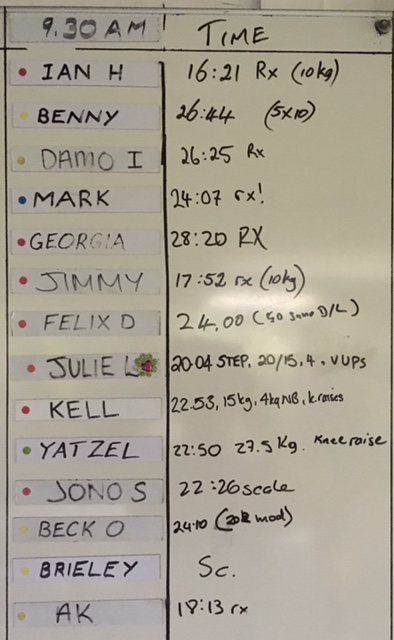 9.30 AM TIME
IAN H 16:21 Rx (10kg)
BENNY 26:44 (5x10)
DAMO I 26:25 Rx
MARK 24:07 rx!
GEORGIA 28:20 RX
JIMMY 17:52 rx (10kg)
FELIX D 24.00 (50 sumo D/L)
JULIE L 20.04 STEP, 20/15, 4, VUPs
KELL 22.53, 15kg, 4kg NB, k.raises
YATZEL 22:50 27.5 Kg. Knee raise
JONO S 22:26 scale
BECK O 24:10 (20k mod)
BRIELEY Sc.
AK 18:13 rx